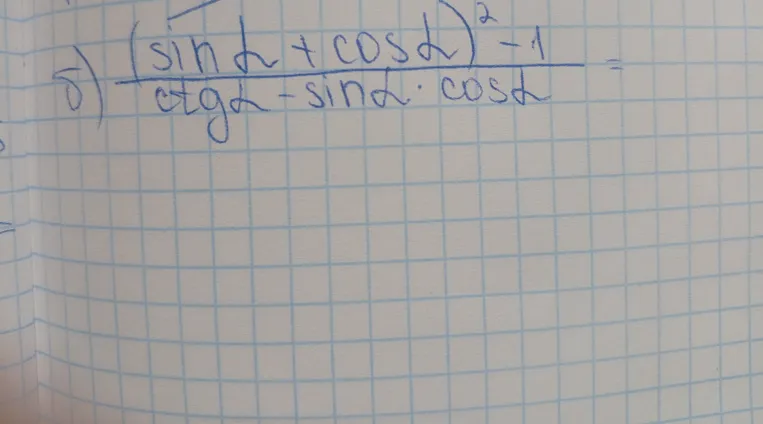 б) (sin α + cos α)² - 1
ctg α - sin α · cos α =